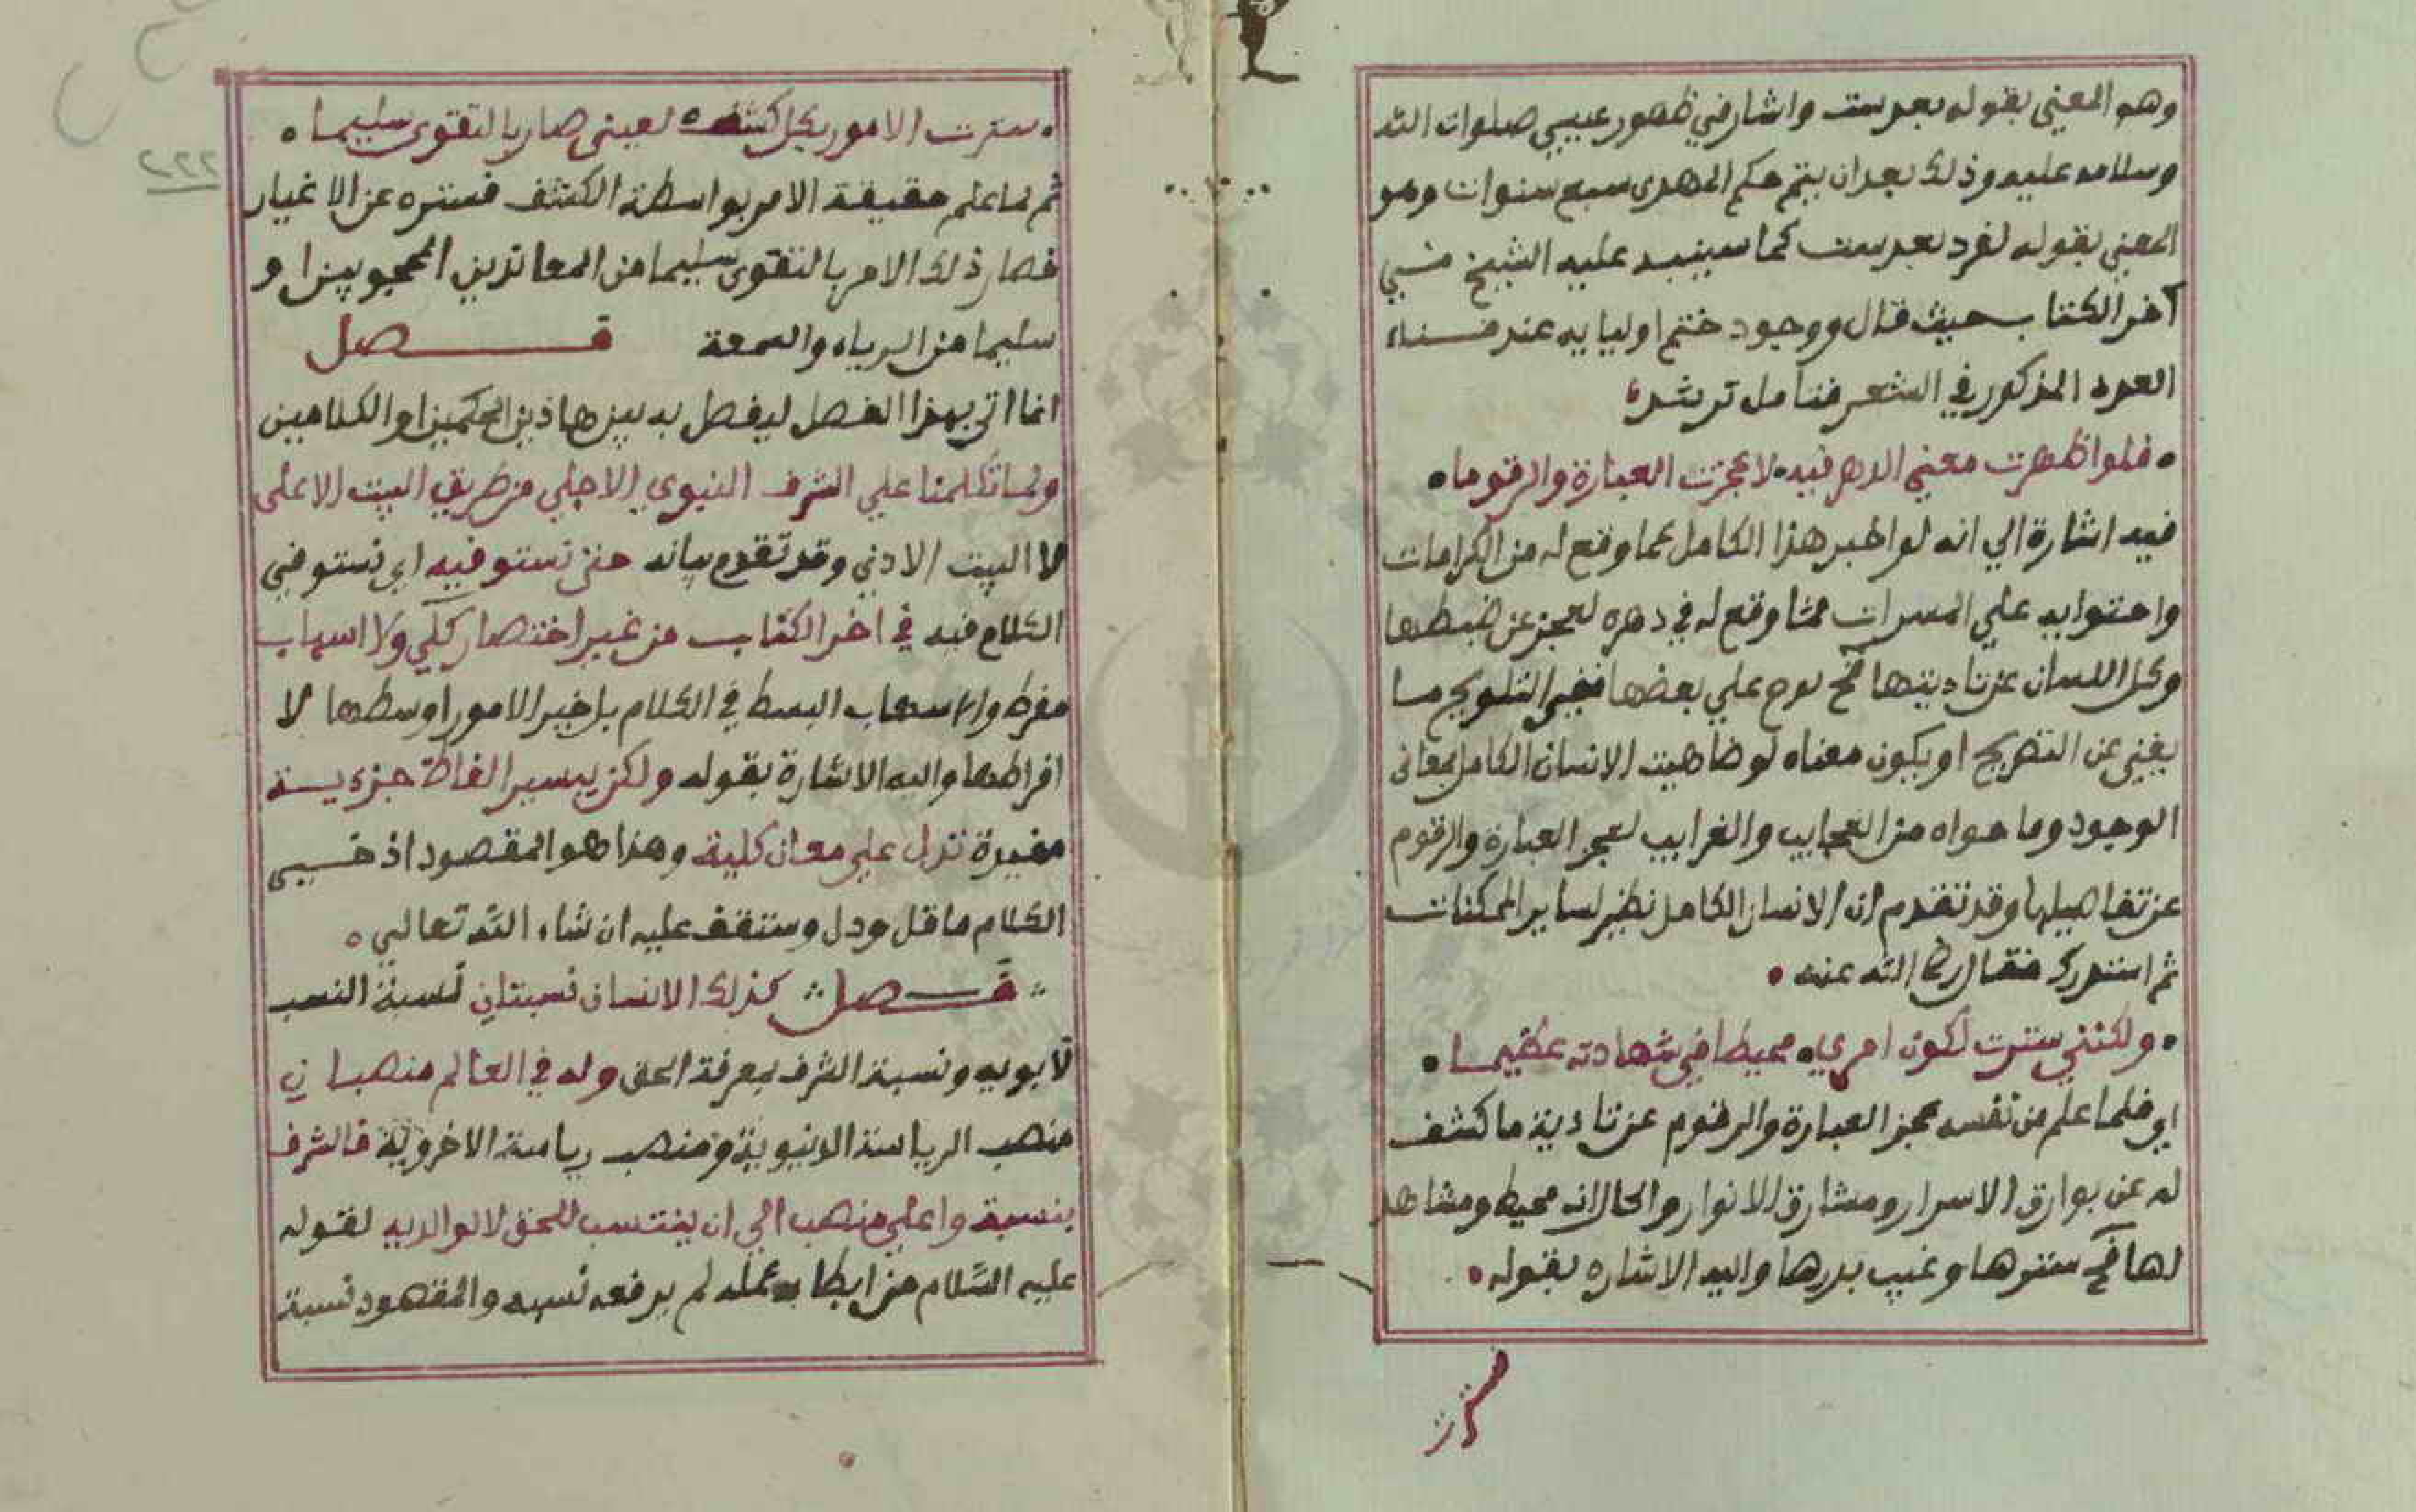 وهو المعني بقوله بعد ست واشار في ظهور عيسي صلوات الله
وسلامه عليه وذلك بعد ان يتم حكم المهدى سبع سنوات وهو
المعني بقوله لفرد بعد ست كما سينبه عليه الشيخ في
آخر الكتاب حيث قال ووجود ختم اوليايه عند فناء
العدد المذكور في الشعر فتامل ترشد
فلو اظهرت معني الدهر فيه لاعجزت العبارة والرقوما
فيه اشارة الي انه لو اخبر هذا الكامل بما وقع له من الكرامات
واحتوايه علي المسرات مما وقع له في دهره لعجز عن ضبطها
وكل اللسان عن تاديتها فح لوح علي بعضها ففي التلويح ما
يغني عن التصريح او يكون معناه لو ضاهيت الانسان الكامل بمعانى
الوجود وما حواه من العجايب والغرايب لعجز العبارة والرقوم
عن تفاصيلها وقد تقدم ان الانسان الكامل نظير لساير الممكنات
ثم استدرك فقال رضا الله عنه
ولكنني سترت لكون امري محيطا في شهادته عظيما
اي فلما علم من نفسه عجز العبارة والرقوم عن تادية ما كشف
له عن بوارق الاسرار ومشارق الانوار والحال انه محيط ومشاهد
لها فح سترها وغيب بدرها واليه الاشاره بقوله
سترت
٢٢٢
سترت الامور بكل كشف لعينى صار بالتقوى سليما
ثم لما علم حقيقة الامر بواسطة الكشف فستره عن الاغيار
فصار ذلك الامر بالتقوى سليما من المعاندين المحجوبين او
سليما من الرياء والسمعة فصل
انما اتى بهذا الفصل ليفصل به بين هاذين الحكمين او الكلامين
ولما تكلمنا علي الشرف النبوي الاجلي من طريق البيت الاعلى
لا البيت الادني وقد تقدم بيانه حتى نستوفيه اي نستوفي
الكلام فيه في اخر الكتاب من غير اختصار كلي ولا اسهاب
مفرط والاسهاب البسط في الكلام بل خير الامور اوسطها لا
افراطها واليه الاشارة بقوله ولكن بيسير الفاظ جزءية
مفيدة تدل علي معان كلية وهذا هو المقصود اذ خير
الكلام ما قل ودل وستقف عليه ان شاء الله تعالي
فصل كذلك الانسان نسبتان نسبة النسب
لابويه ونسبة الشرف بمعرفة الحق وله في العالم منصبان
منصب الرياسة الدنيوية ومنصب رياسة الاخروية فالشرف
بنسبة واعلي منصب الي ان ينتسب للحق لا لوالديه لقوله
عليه السلام من ابطا به عمله لم يرفعه نسبه والمقصود نسبة